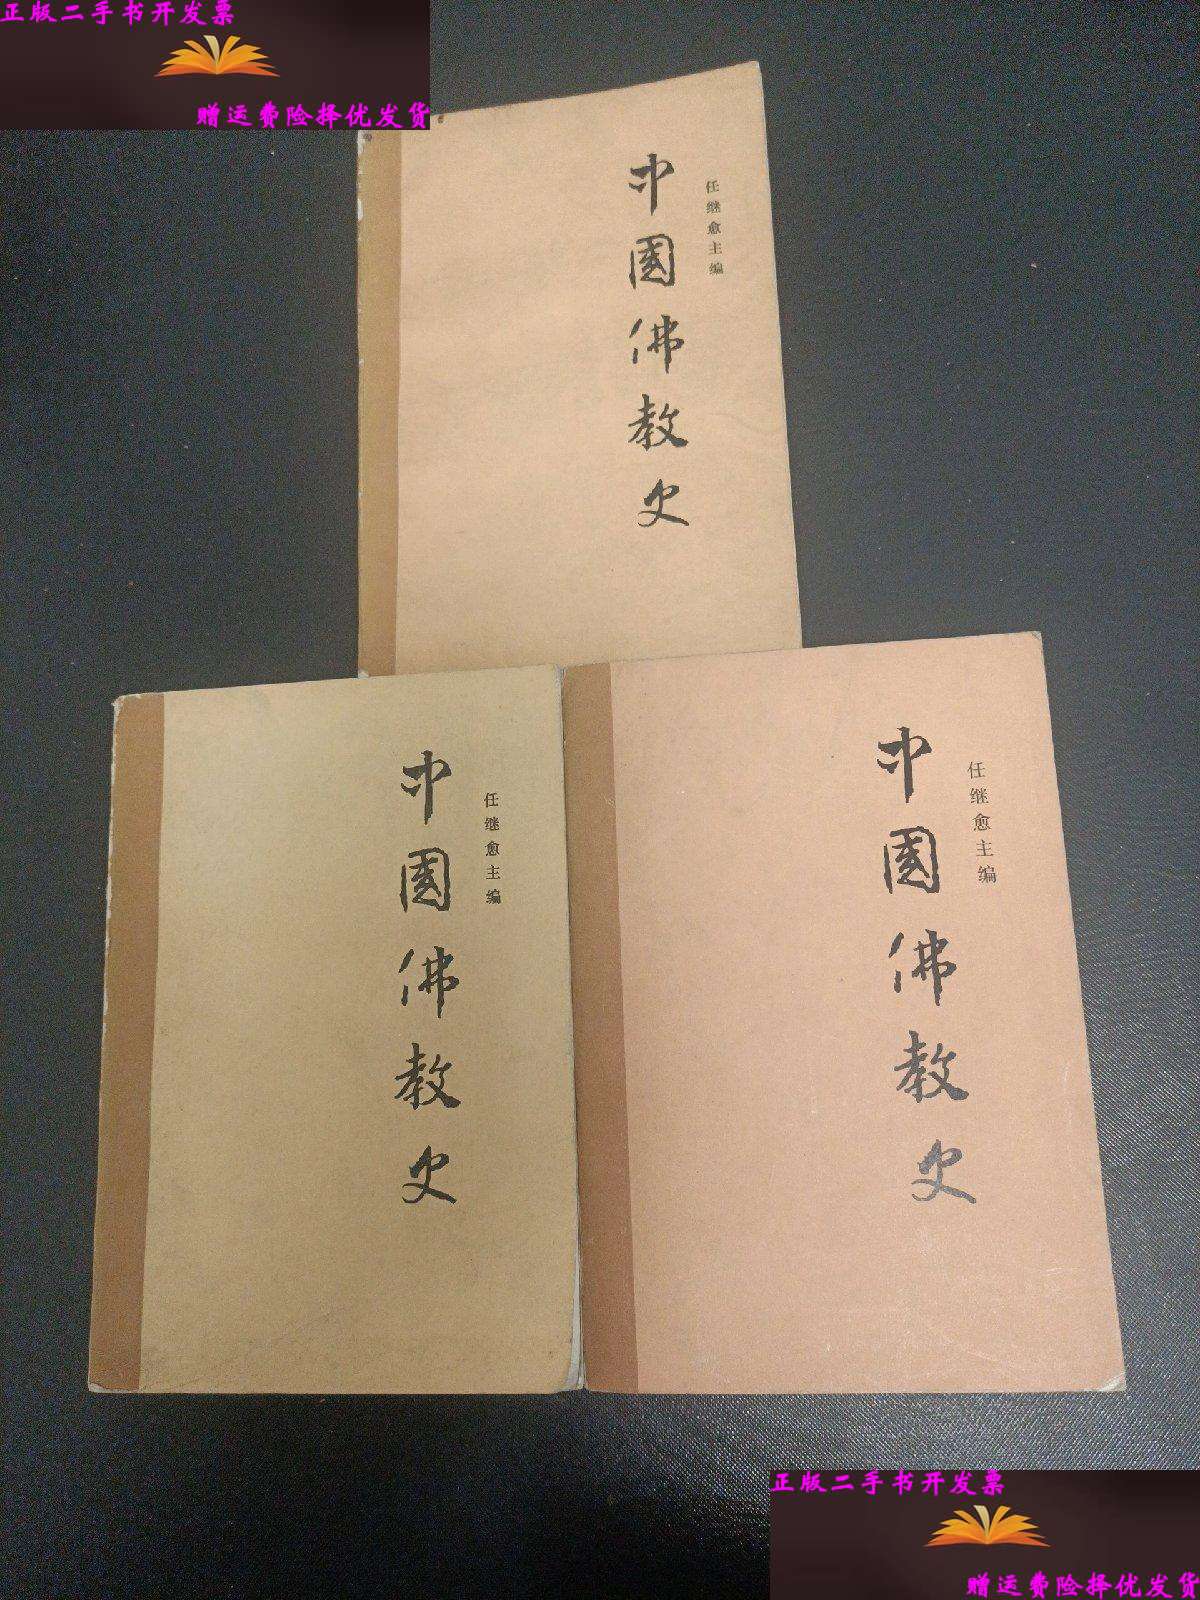 正版二手书开发票
赠运费险择优发货
任继愈主编
中國佛教史
任继愈主编
中國佛教史
任继愈主编
中國佛教史
正版二手书开发票
赠运费险择优发货